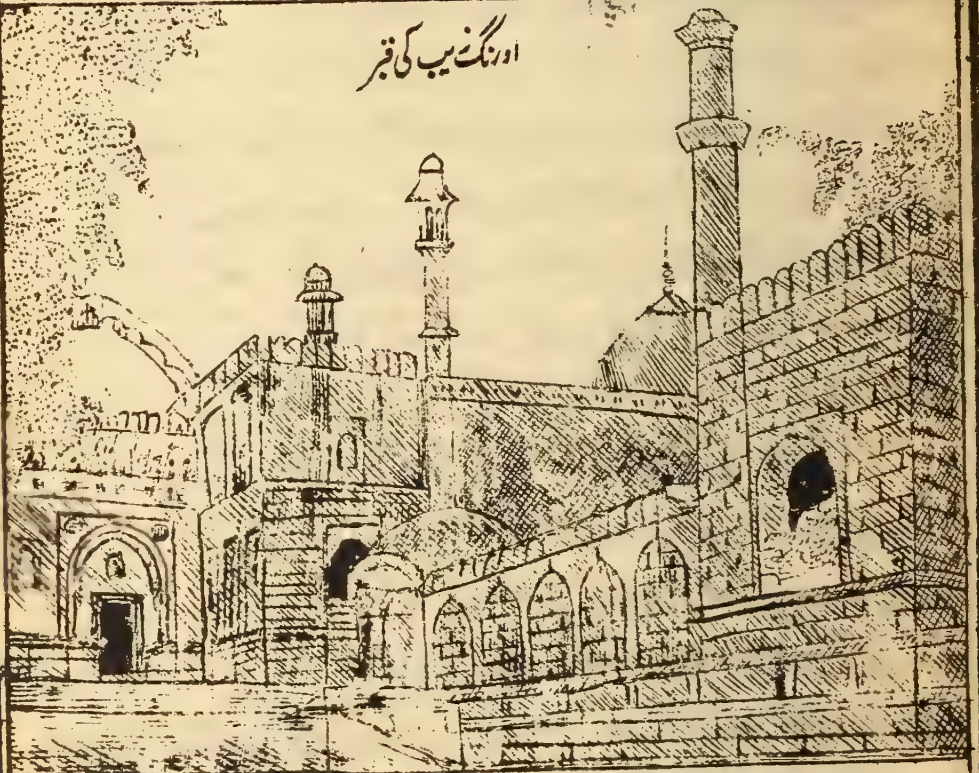 اورنگ زیب کی قبر